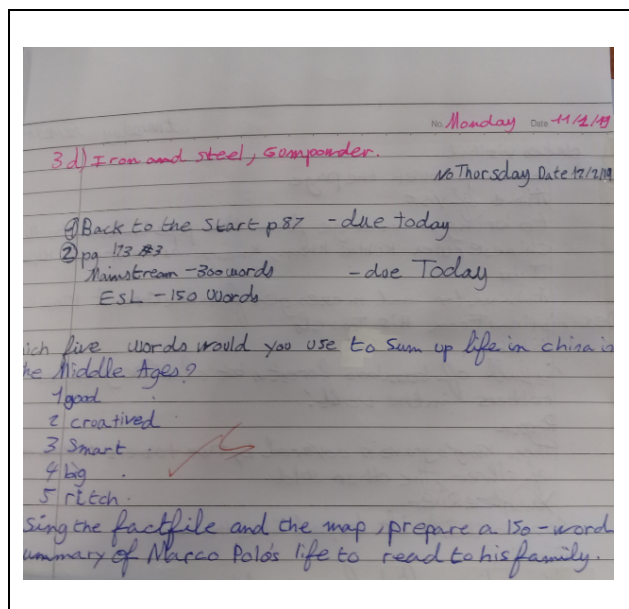 No. Monday Date 11/2/19
3 d) Iron and steel, Gompowder.
No Thorsday Date 12/2/19
① Back to the Start p87 - due today
② pg 173 #3
Mainstream - 300 words - due Today
ESL - 150 words
ich five words would you use to sum up life in china in
he Middle Ages?
1 good
2 croatived
3 Smart
4 big
5 ritch
sing the factfile and the map, prepare a 150-word
ummary of Marco Polo's life to read to his family.